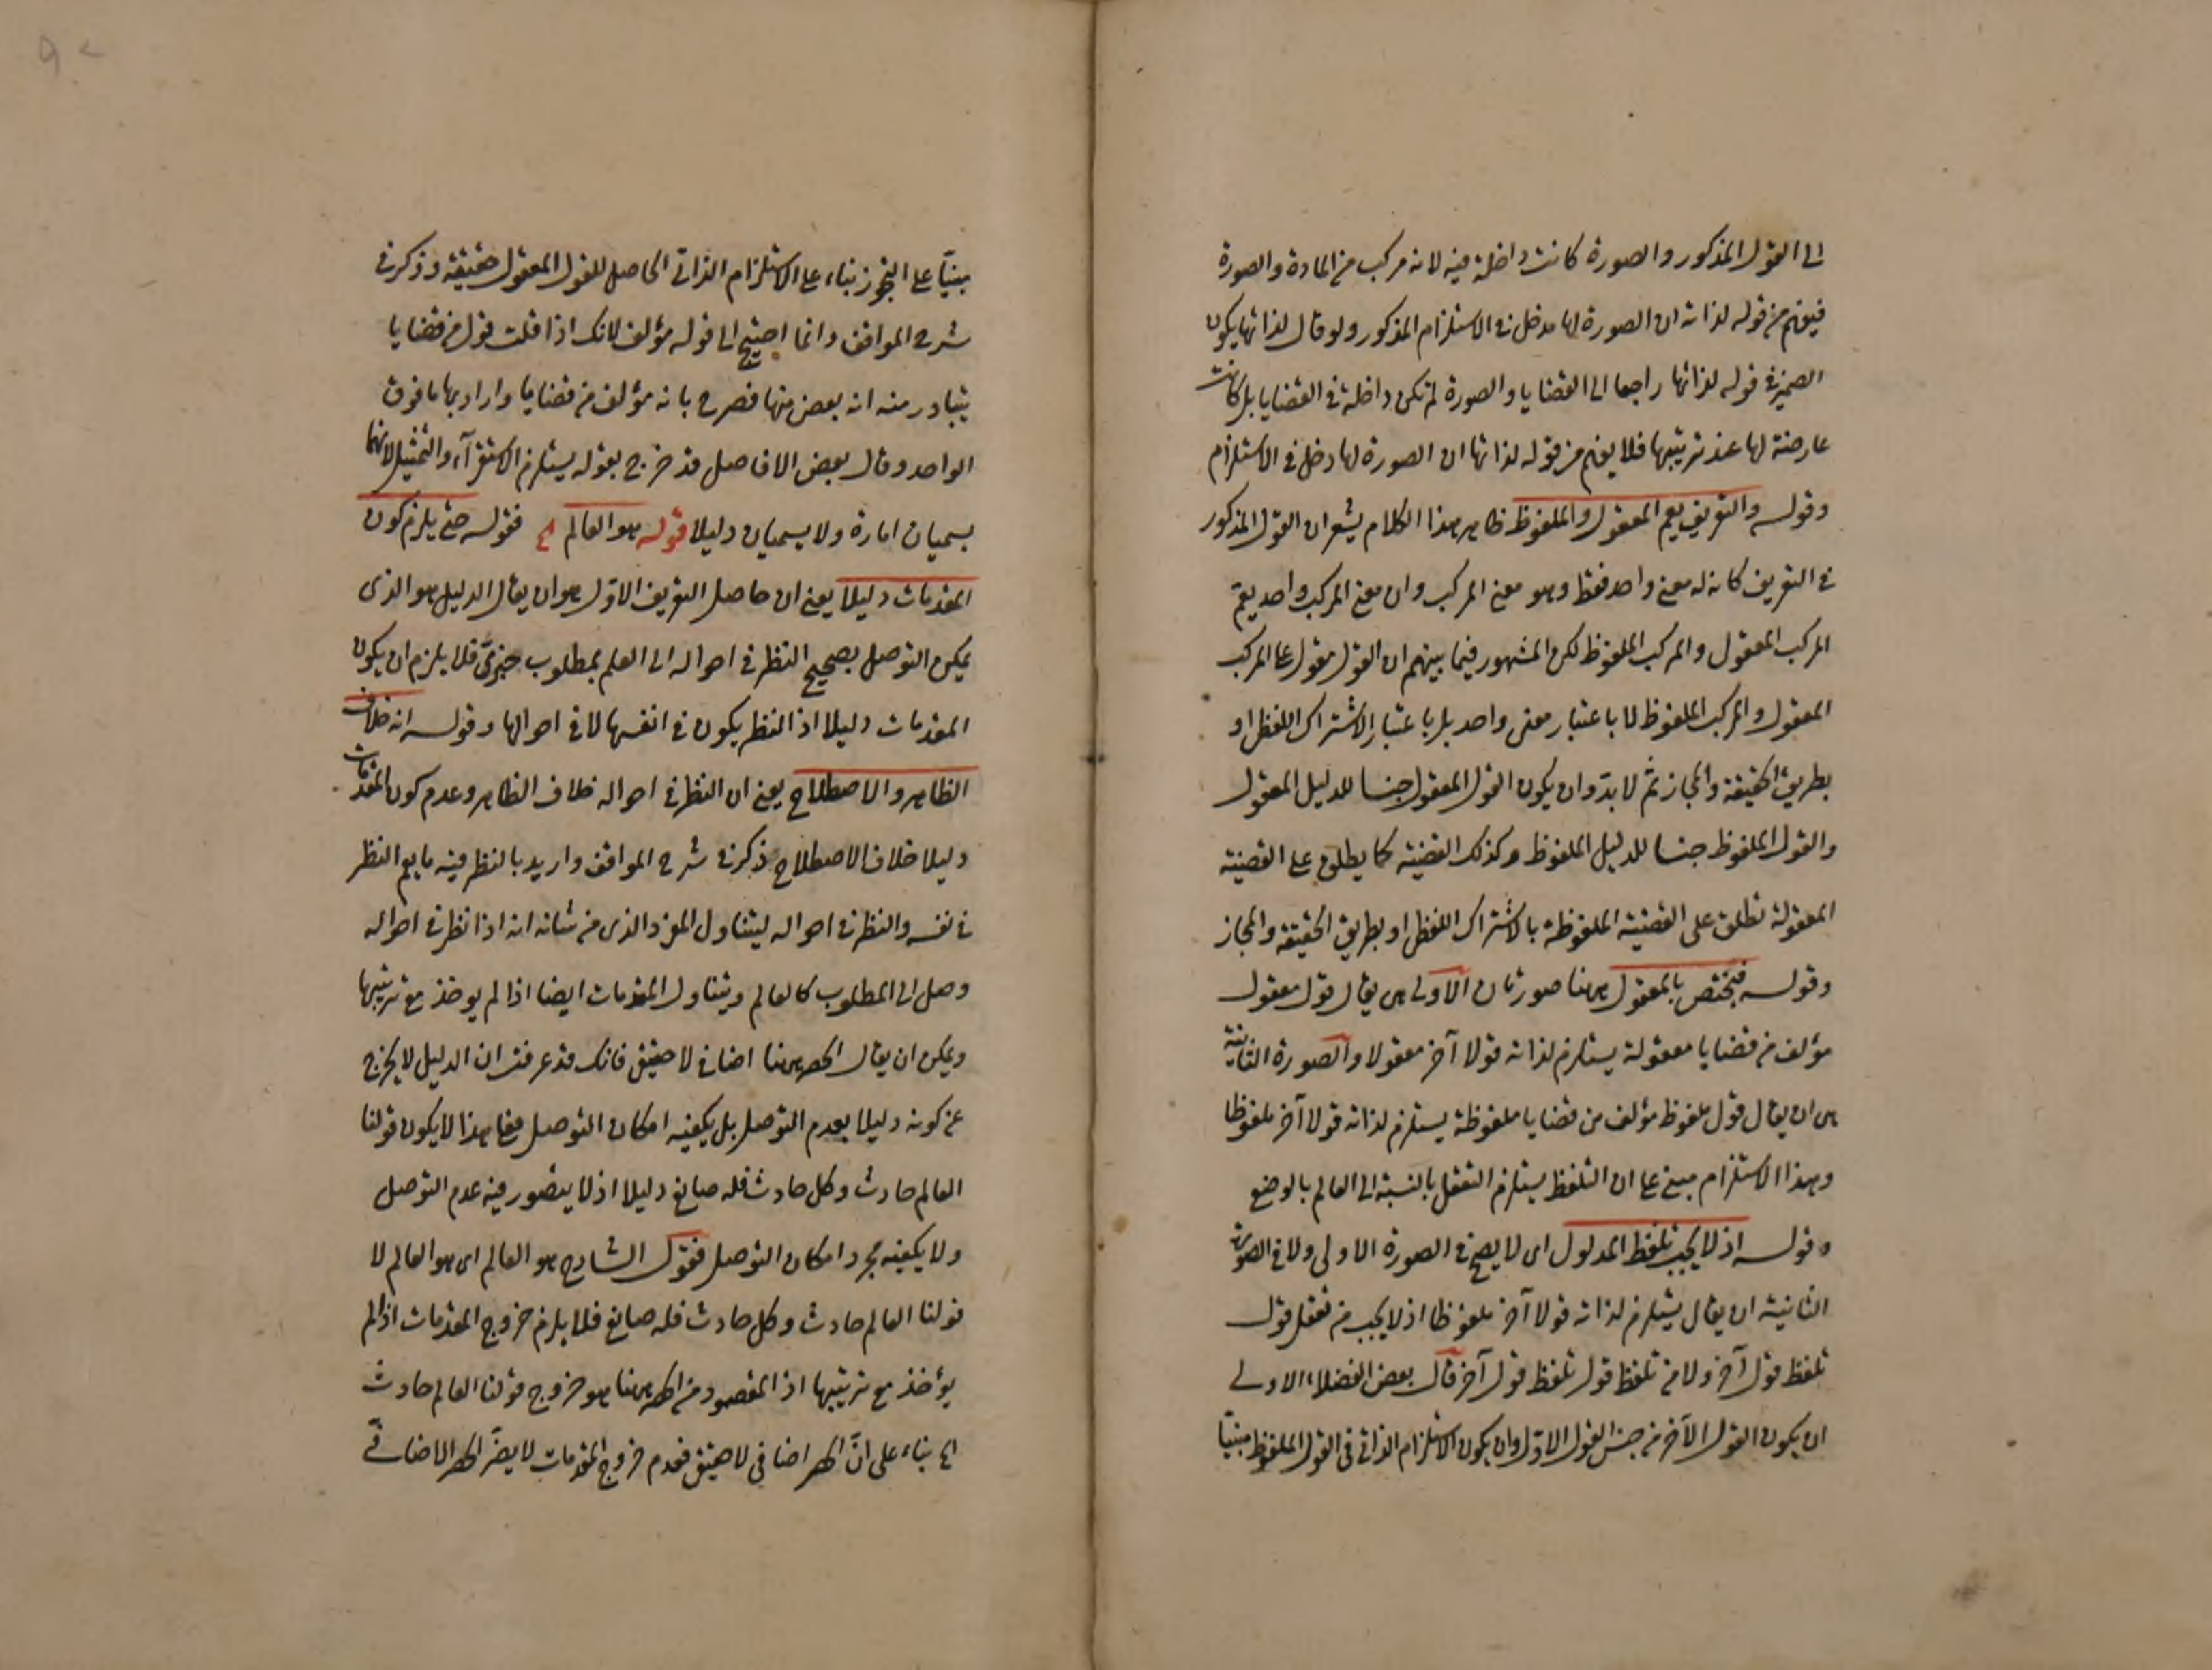 الى القول المذكور والصورة كانت داخلة فيه لانه مركب من المادة والصورة
فيفهم من قوله لذاته ان الصورة لها مدخل فى الاستلزام المذكور ولو قال لذاتها يكون
الضمير فى قوله لذاتها راجعا الى القضايا والصورة لم تكن داخلة فى القضايا بل كانت
عارضة لها عند ترتيبها فلا يفهم من قوله لذاتها ان الصورة لها دخل فى الاستلزام
وقوله والتعريف يعم المعقول والملفوظ ظاهر هذا الكلام يشعر ان القول المذكور
فى التعريف كانه له معنى واحد فقط وهو معنى المركب وان معنى المركب واحد يعم
المركب المعقول والمركب الملفوظ لكن المشهور فيما بينهم ان القول مقول على المركب
المعقول والمركب الملفوظ لا باعتبار معنى واحد بل باعتبار الاشتراك اللفظى او
بطريق الحقيقة والمجاز ثم لا بد وان يكون القول المعقول جنسا للدليل المعقول
والقول الملفوظ جنسا للدليل الملفوظ وكذلك القضية كما يطلق على القضية
المعقولة تطلق على القضية الملفوظة بالاشتراك اللفظى او بطريق الحقيقة والمجاز
وقوله فيختص بالمعقول ههنا صورتان الاولى هى يقال قول معقول
مؤلف من قضايا معقولة يستلزم لذاته قولا آخر معقولا والصورة الثانية
هى ان يقال قول ملفوظ مؤلف من قضايا ملفوظة يستلزم لذاته قولا آخر ملفوظا
وهذا الاستلزام مبنى على ان التلفظ يستلزم التعقل بالنسبة الى العالم بالوضع
وقوله اذ لا يجب تلفظ المدلول اى لا يصح فى الصورة الاولى ولا فى الصورة
الثانية ان يقال يستلزم لذاته قولا آخر ملفوظا اذ لا يجب من تعقل قول
تلفظ قول آخر ولا من تلفظ قول تلفظ قول آخر قال بعض الفضلاء الاولى
ان يكون القول الآخر من جنس القول الاول وان يكون الاستلزام الذاتى فى القول الملفوظ مبنيا
مبنيا على التجوز بناء على الاستلزام الذاتى الحاصل للقول المعقول حقيقة وذكر فى
شرح المواقف وانما احتيج الى قوله مؤلف لانك اذا قلت قول من قضايا
يتبادر منه انه بعض منها فصرح بانه مؤلف من قضايا واراد بها ما فوق
الواحد وقال بعض الافاضل قد خرج بقوله يستلزم الاستقرآء والتمثيل لانهما
يسميان امارة ولا يسميان دليلا قوله هو العالم الخ فقوله حتى يلزم كون
المقدمات دليلا يعنى ان حاصل التعريف الاول هو ان يقال الدليل هو الذى
يمكن التوصل بصحيح النظر فى احواله الى العلم بمطلوب خبرى فلا يلزم ان يكون
المقدمات دليلا اذ النظر يكون فى انفسها لا فى احوالها وقوله انه خلاف
الظاهر والاصطلاح يعنى ان النظر فى احواله خلاف الظاهر وعدم كون المقدمات
دليلا خلاف الاصطلاح ذكر فى شرح المواقف واريد بالنظر فيه ما يعم النظر
فى نفسه والنظر فى احواله ليتناول المفرد الذى من شانه انه اذا نظر فى احواله
وصل الى المطلوب كالعالم ويتناول المقدمات ايضا اذا لم يوخذ مع ترتيبها
ويمكن ان يقال الحصر ههنا اضافى لا حقيقى فانك قد عرفت ان الدليل لا يخرج
عن كونه دليلا بعدم التوصل بل يكفيه امكان التوصل فعلى هذا لا يكون قولنا
العالم حادث وكل حادث فله صانع دليلا اذ لا يتصور فيه عدم التوصل
ولا يكفيه مجرد امكان التوصل فقول الشارح هو العالم اى هو العالم لا
قولنا العالم حادث وكل حادث فله صانع فلا يلزم خروج المقدمات اذا لم
يؤخذ مع ترتيبها اذ المقصود من الحصر ههنا هو خروج قولنا العالم حادث
الخ بناء على ان الحصر اضافى لا حقيقى فعدم خروج المقدمات لا يضر الحصر الاضافى